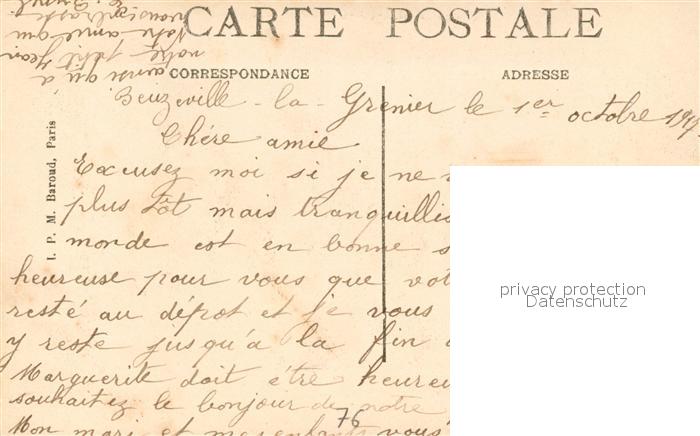 CARTE POSTALE
CORRESPONDANCE
ADRESSE
I. P. M. Baroud, Paris
Beuzeville - la - Grenier le 1er octobre
Chére amie
Excusez moi si je ne
plus tôt mais tranquillis
monde est en bonne s
heureuse pour vous que vot
resté au dépot et je vous
y reste jusqu'à la fin
Marguerite doit être heureu
souhaitez le bonjour de notre
Mon mari et mes enfants vous
76
ainsi qu'à
notre petit Jean
Votre amie qui
privacy protection
Datenschutz